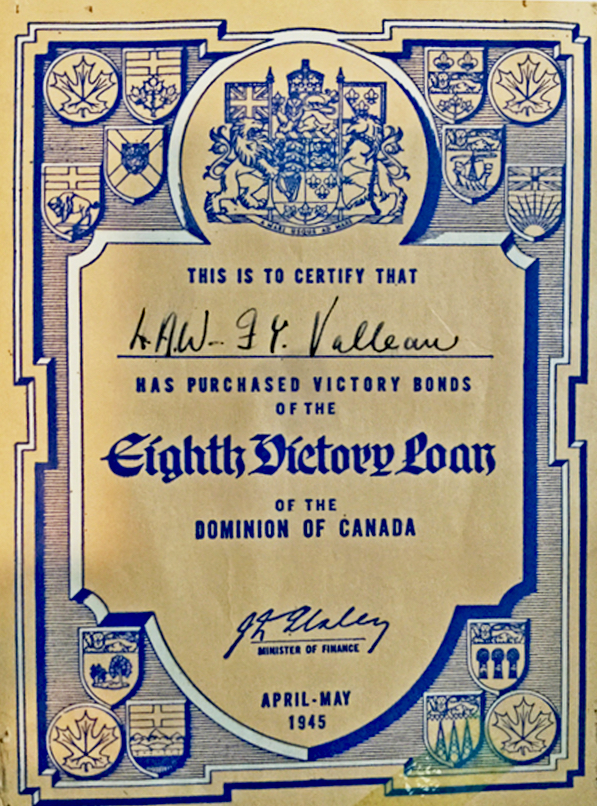 A MARI USQUE AD MARE
THIS IS TO CERTIFY THAT
L.A.W- F.Y. Valleau
HAS PURCHASED VICTORY BONDS
OF THE
Eighth Victory Loan
OF THE
DOMINION OF CANADA
J L Ilsley
MINISTER OF FINANCE
APRIL-MAY
1945